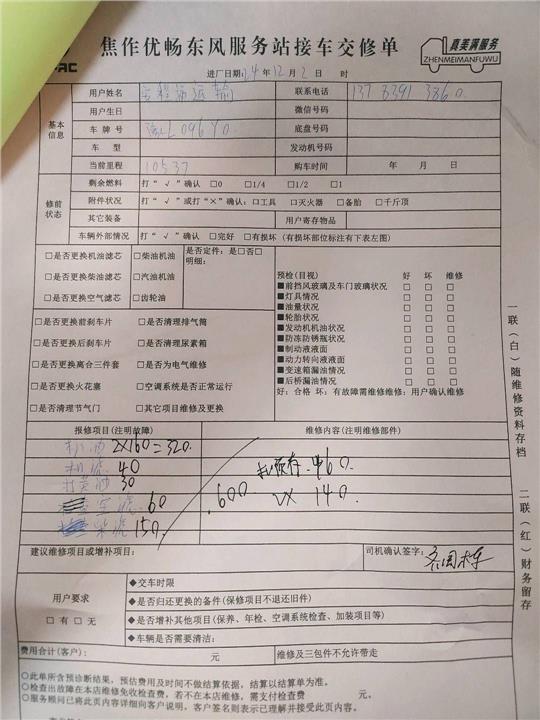 焦作优畅东风服务站接车交修单
真美满服务
ZHENMEIMANFUWU
进厂日期 24年12月2日 时
基本信息
用户姓名 联系电话 137 8391 3860
用户生日 微信号码
车牌号 L096Y0 底盘号码
车型 发动机号码
当前里程 10537 购车时间 年 月 日
修前状态
剩余燃料 打“√”确认 □0 □1/4 □1/2 □1
附件状况 打“√”或打“×”确认:□工具 □灭火器 □备胎 □千斤顶
其它装备 用户寄存物品
车辆外部情况 打“√”确认 □完好 □有损坏 (有损坏部位标注有下表左图)
□是否更换机油滤芯 □柴油机油
□是否更换柴油滤芯 □汽油机油
□是否更换空气滤芯 □齿轮油
是否定件:是□否□
明细:
□是否更换前刹车片 □是否清理排气筒
□是否更换后刹车片 □是否清理尿素箱
□是否更换离合三件套 □是否为电气维修
□是否更换火花塞 □空调系统是否正常运行
□是否清理节气门 □其它项目维修及更换
预检(目视) 好 坏 维修
■前挡风玻璃及车门玻璃状况 □ □ □
■灯具情况 □ □ □
■油量状况 □ □ □
■轮胎状况 □ □ □
■发动机机油状况 □ □ □
■防冻防锈瓶状况 □ □ □
■制动液液面 □ □ □
■动力转向液液面 □ □ □
■变速箱漏油情况 □ □ □
■后桥漏油情况 □ □ □
好:合格 坏:有故障需维修维修:用户确认维修
报修项目(注明故障) 维修内容(注明维修部件)
机油 2X160=320
机滤 40
打黄油 30
空滤 60
柴滤 150
600
460
2X 140
建议维修项目或增补项目: 司机确认签字:
用户要求
□有□无
◆交车时限
◆是否归还更换的备件(保修项目不退还旧件)
◆是否增补其他项目(保养、年检、空调系统检查、加装项目等)
◆车辆是否需要清洁:
费用合计(客户): 元 维修及三包件不允许带走
○此单所含预诊断结果,预估费用及时间不做结算依据,结算以结算单为准。
○检查出故障在本店维修免收检查费,若不在本店维修,需支付检查费 元。
○服务顾问已将此页内容详细向客户说明,客户签名则表示已理解并接受此页内容。
一联(白)随维修资料存档
二联(红)财务留存